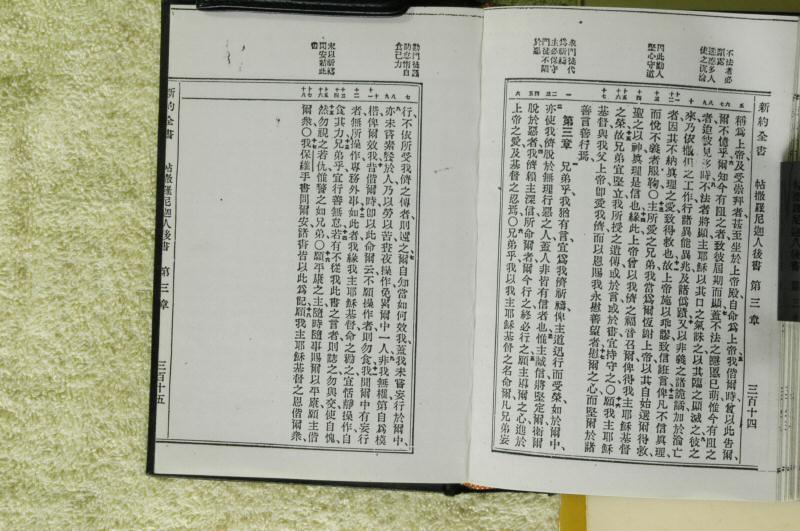 新約全書 帖撒羅尼迦人後書 第三章 三百十四
不法者必
顯露
迷惑多人
使之沉淪
因此勸人
堅心守道
求門徒代
爲祈禱
主必保守
門徒不陷
於惡
稱爲上帝及受崇拜者甚至坐於上帝殿自命爲上帝我偕爾時曾以此告爾
爾不憶乎爾知今有阻之者致彼屆期而顯蓋不法之隱慝已萌惟今有阻之
者迨彼見移時不法者將顯主耶穌以其口之氣誅之以其臨之顯滅之彼之
來乃依撒但之工作行諸異能異兆及諸僞蹟又以非義之諸詭譎加於淪亡
者因其不納眞理之愛致得救也故上帝施以乖謬致信誑言俾凡不信眞理
而悅不義者服鞫〇主所愛之兄弟我當爲爾恆謝上帝以其自始選爾得救
聖之以神眞理是信也緣此上帝曾以我儕之福音召爾俾得我主耶穌基督
之榮故兄弟宜堅立我所授之遺傳或於言或於書宜持守之〇願我主耶穌
基督與我父上帝卽愛我儕而以恩賜我永慰善望者慰爾之心而堅爾於諸
善言善行焉
第三章 兄弟乎我猶有言宜爲我儕祈禱俾主道迅行而受榮如於爾中
亦使我儕脫於無理行惡之人蓋人非皆有信者也惟主誠信將堅定爾衛爾
脫於惡者我儕賴主深信所命爾者爾今行之終必行之願主導爾之心進於
上帝之愛及基督之忍焉〇兄弟乎我以我主耶穌基督之名命爾凡兄弟妄
勸門徒謹
防怠惰自
食己力
末以祈禱
問安結此
書
行不依所受我儕之傳者則遠之爾自知當如何效我蓋我未嘗妄行於爾中
亦未嘗素餐於人乃以勞以苦晝夜操作免累爾中一人非我無權第自爲模
楷俾爾效我昔偕爾時卽以此命爾云不願操作者則勿食我聞爾中有妄行
者無所操作專務外事如此者我緣我主耶穌基督命之勸之宜恬靜操作自
食其力兄弟乎宜行善無怠若有不從我此書之言者則誌之勿與交使自愧
然勿視之若仇惟警之如兄弟〇願平康之主隨時隨事賜爾以平康願主偕
爾衆〇我保羅手書問爾安諸書皆以此爲記願我主耶穌基督之恩偕爾衆
新約全書 帖撒羅尼迦人後書 第三章 三百十五